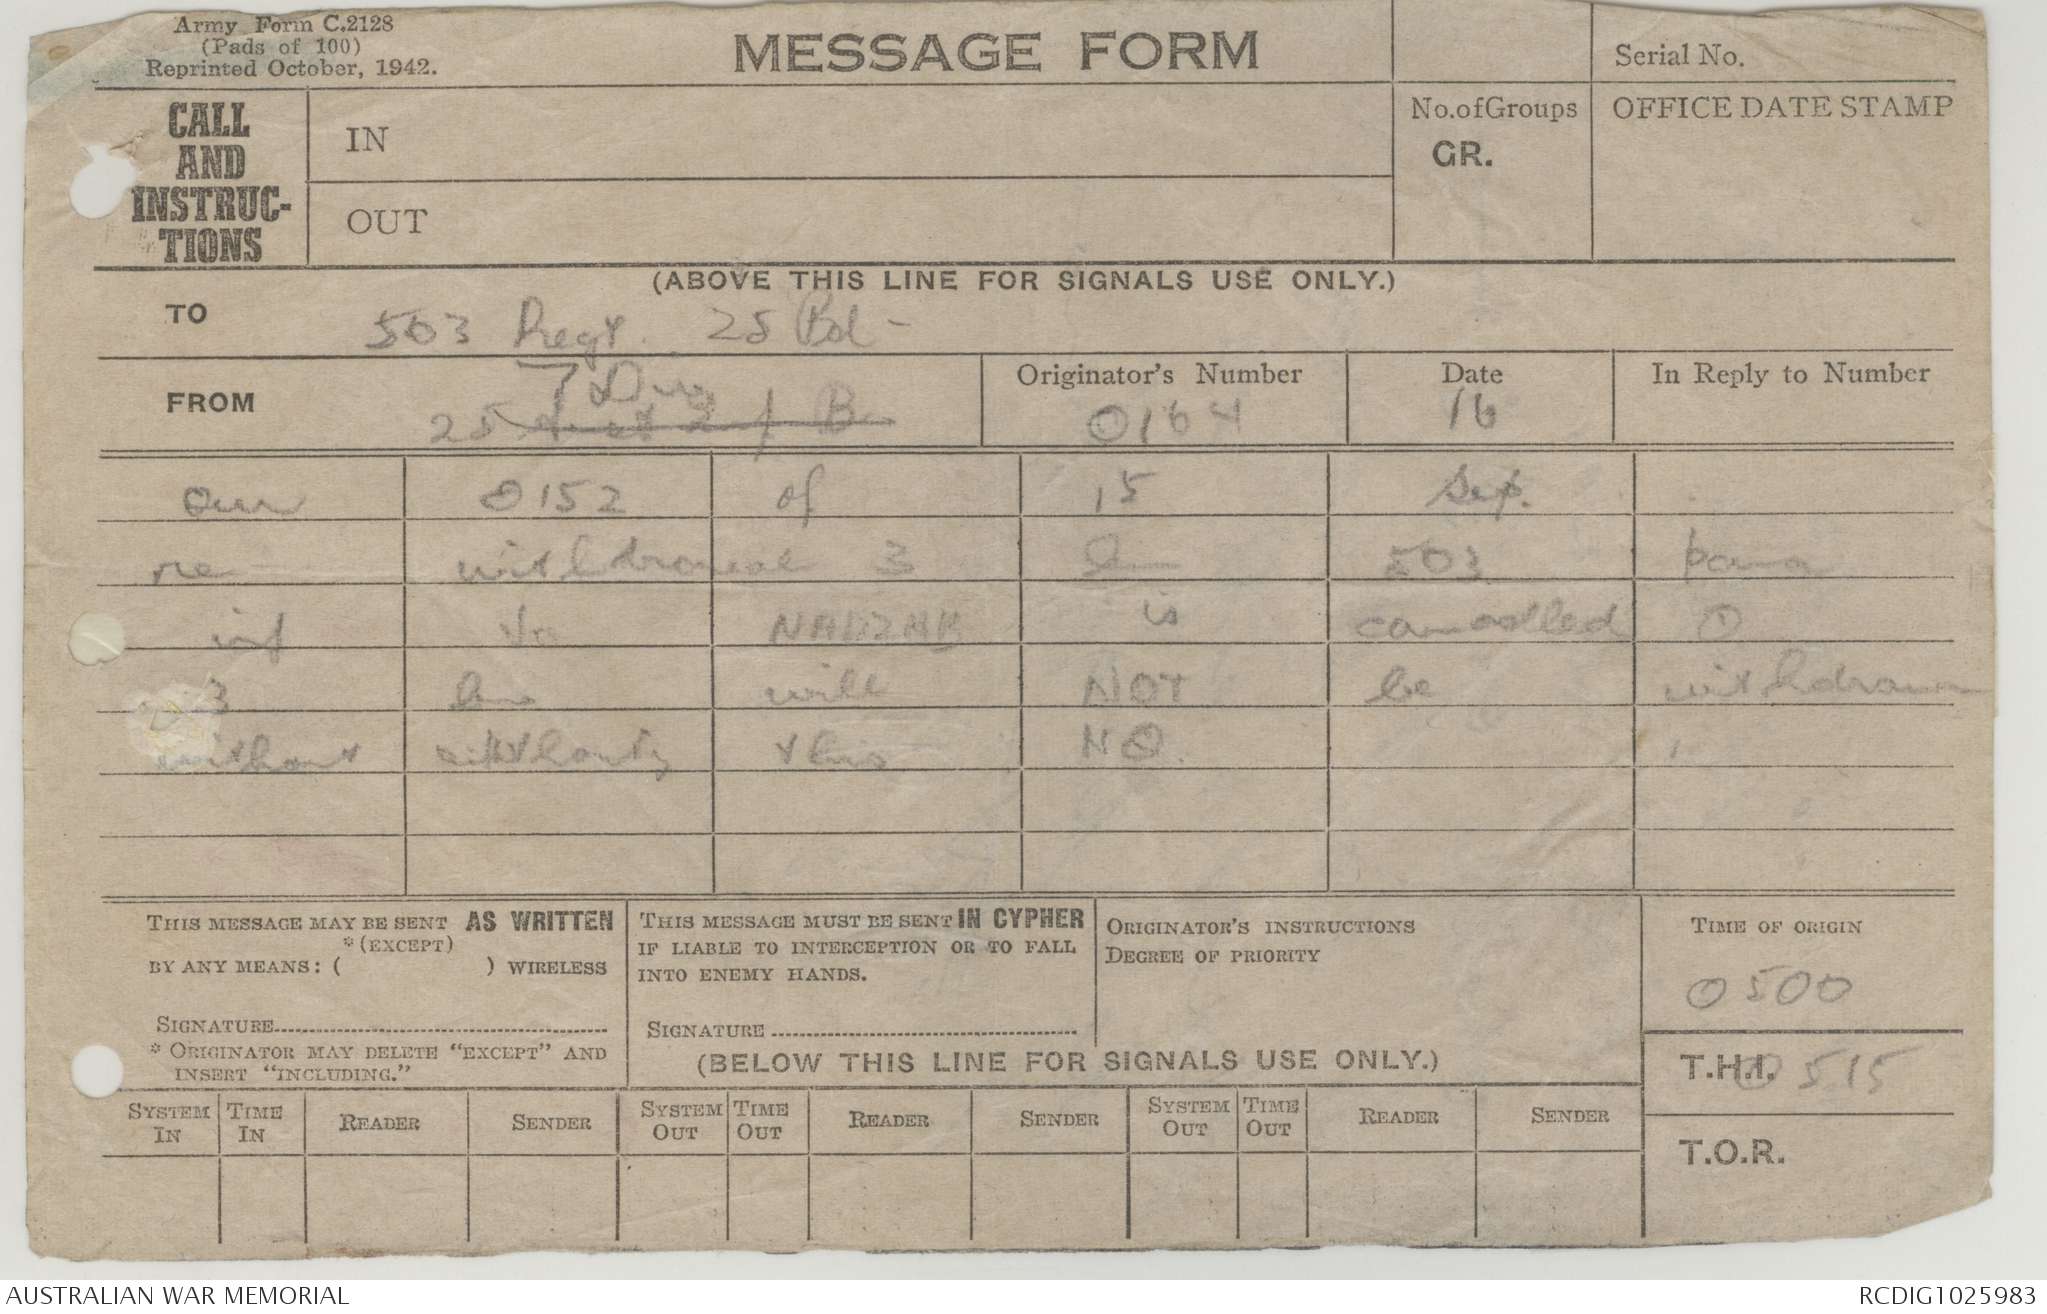 Army Form C.2128
(Pads of 100)
Reprinted October, 1942.
MESSAGE FORM
Serial No.
CALL AND INSTRUC-TIONS
IN
OUT
No. of Groups
GR.
OFFICE DATE STAMP
(ABOVE THIS LINE FOR SIGNALS USE ONLY.)
TO 503 Regt. 25 Bd -
FROM 7 Div
25
Originator's Number
O164
Date
16
In Reply to Number
our O152 of 15 Sep.
re withdrawal 3 Bn 503 para
inf to NADZAB is cancelled ⊙
3 bn will NOT be withdrawn
without authority this HQ.
THIS MESSAGE MAY BE SENT AS WRITTEN
*(EXCEPT)
BY ANY MEANS: ( ) WIRELESS
SIGNATURE
* ORIGINATOR MAY DELETE "EXCEPT" AND
INSERT "INCLUDING."
THIS MESSAGE MUST BE SENT IN CYPHER
IF LIABLE TO INTERCEPTION OR TO FALL
INTO ENEMY HANDS.
SIGNATURE
ORIGINATOR'S INSTRUCTIONS
DEGREE OF PRIORITY
TIME OF ORIGIN
0500
(BELOW THIS LINE FOR SIGNALS USE ONLY.)
T.H.I. 0515
T.O.R.
SYSTEM IN TIME IN READER SENDER SYSTEM OUT TIME OUT READER SENDER SYSTEM OUT TIME OUT READER SENDER
AUSTRALIAN WAR MEMORIAL
RCDIG1025983